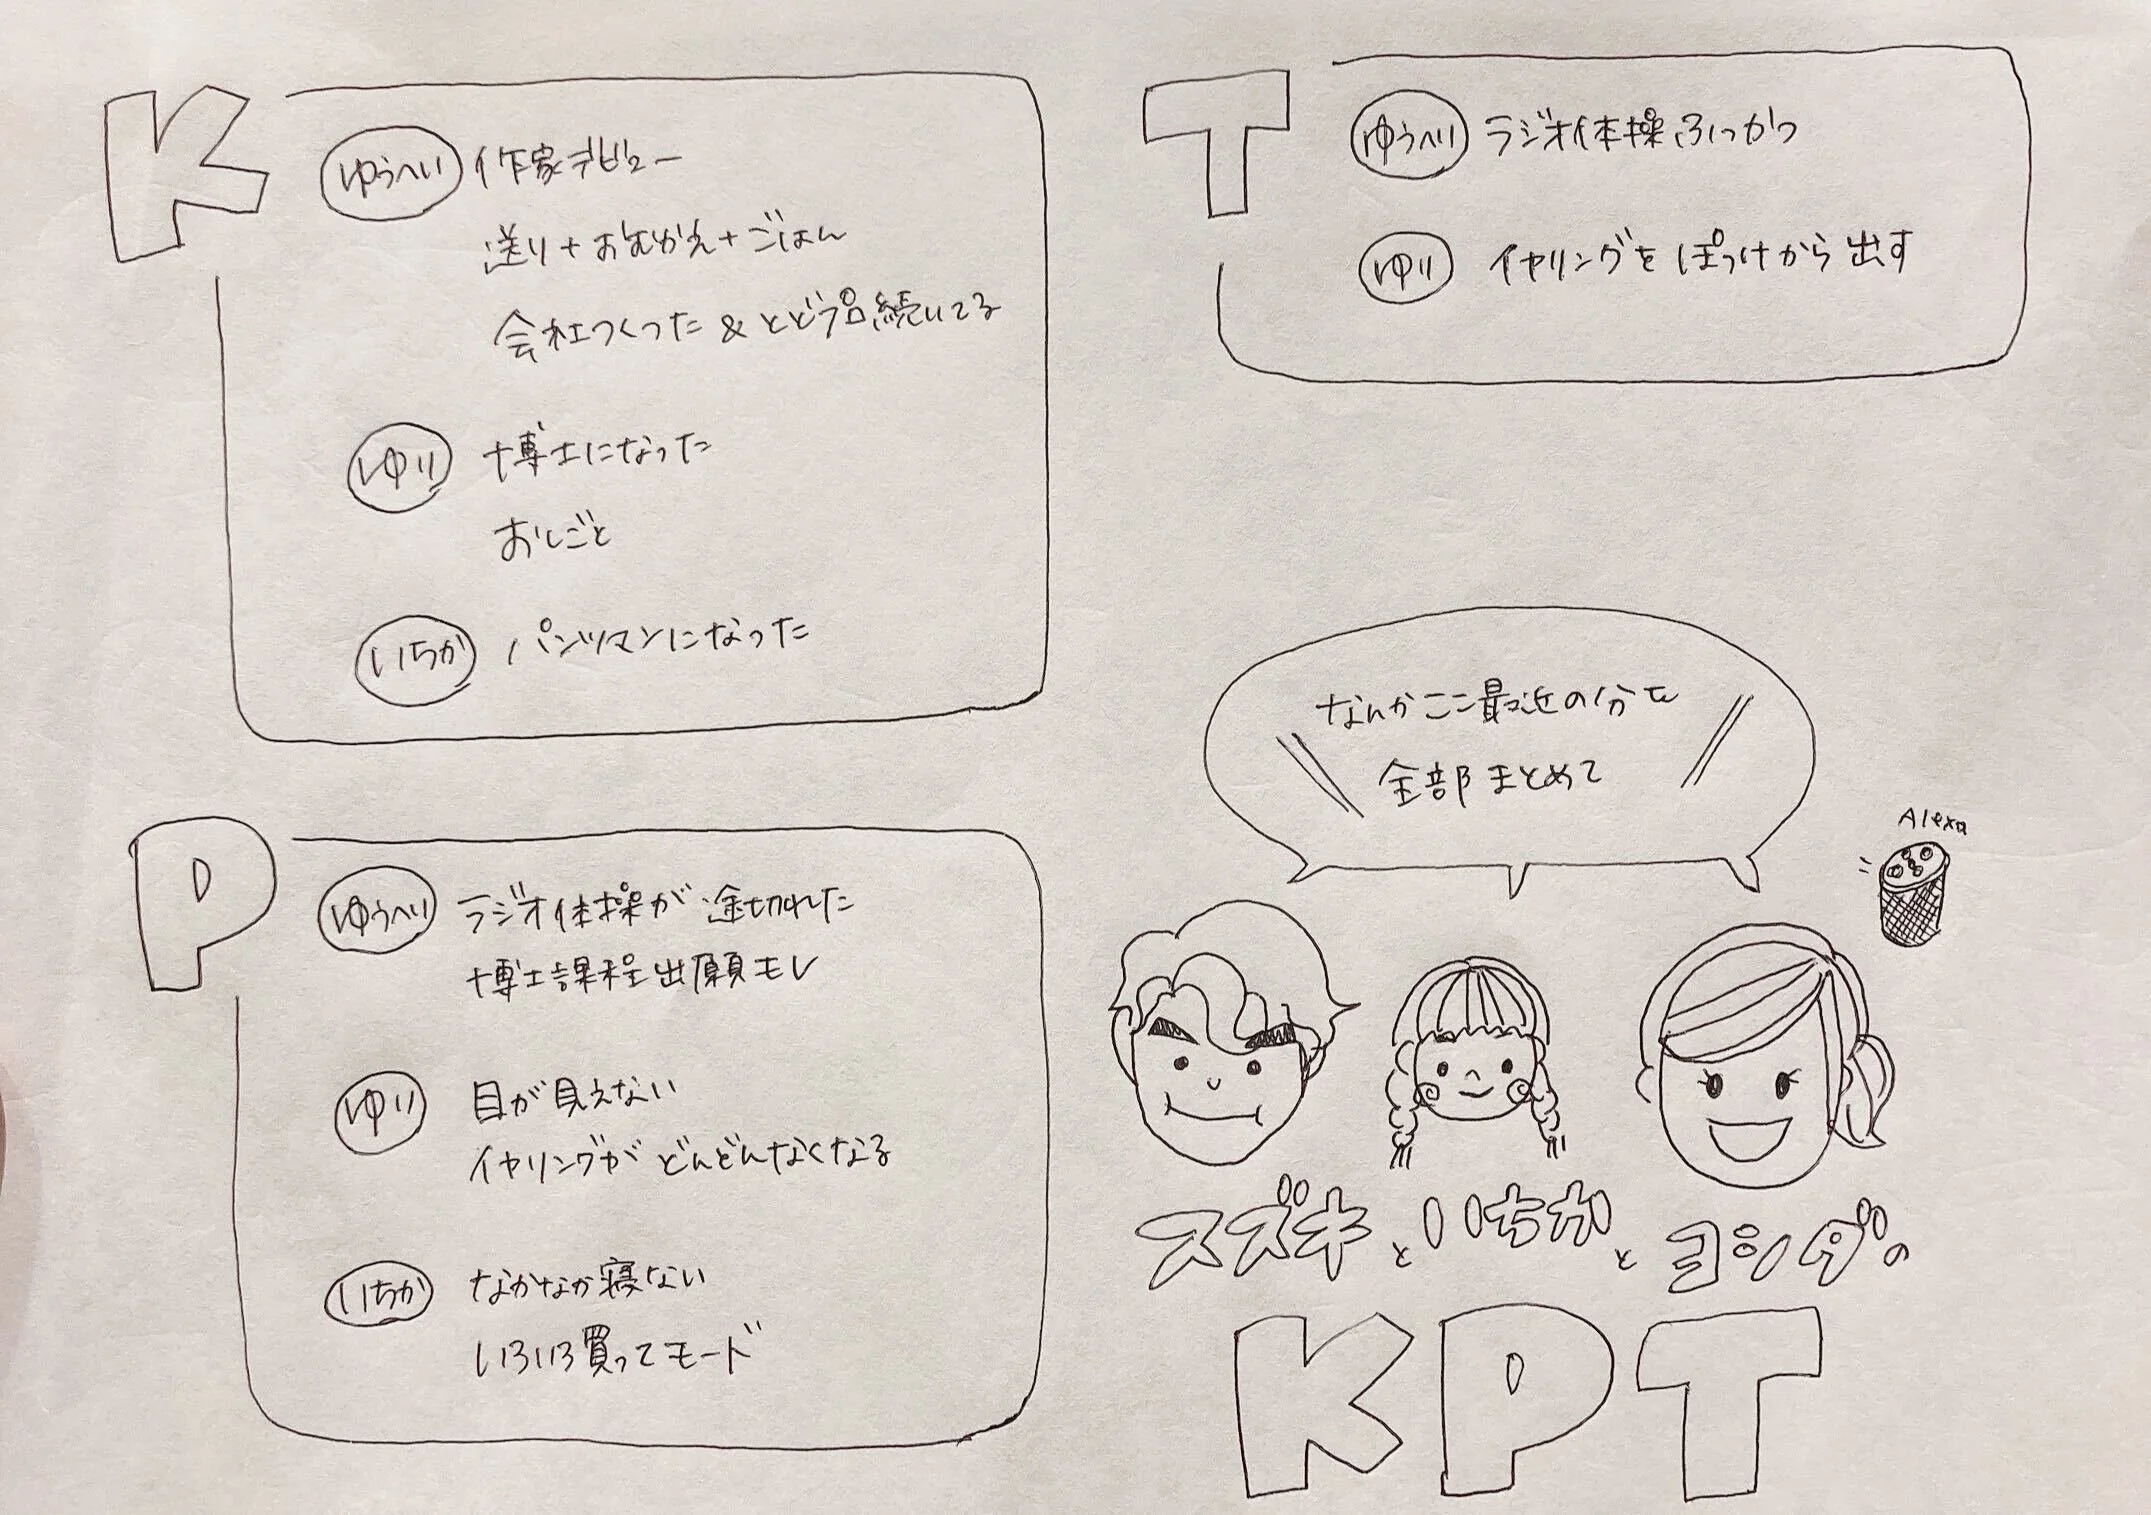 K
ゆうへい 作家デビュー
送り+おむかえ+ごはん
会社つくった & とどプロ続いてる
ゆり 博士になった
おしごと
いちか パンツマンになった
P
ゆうへい ラジオ体操が途切れた
博士課程出願モレ
ゆり 目が見えない
イヤリングがどんどんなくなる
いちか なかなか寝ない
いろいろ買ってモード
T
ゆうへい ラジオ体操ふっかつ
ゆり イヤリングをぽっけから出す
なんかここ最近の分を
全部まとめて
Alexa
スズキといちかとヨシダの
KPT